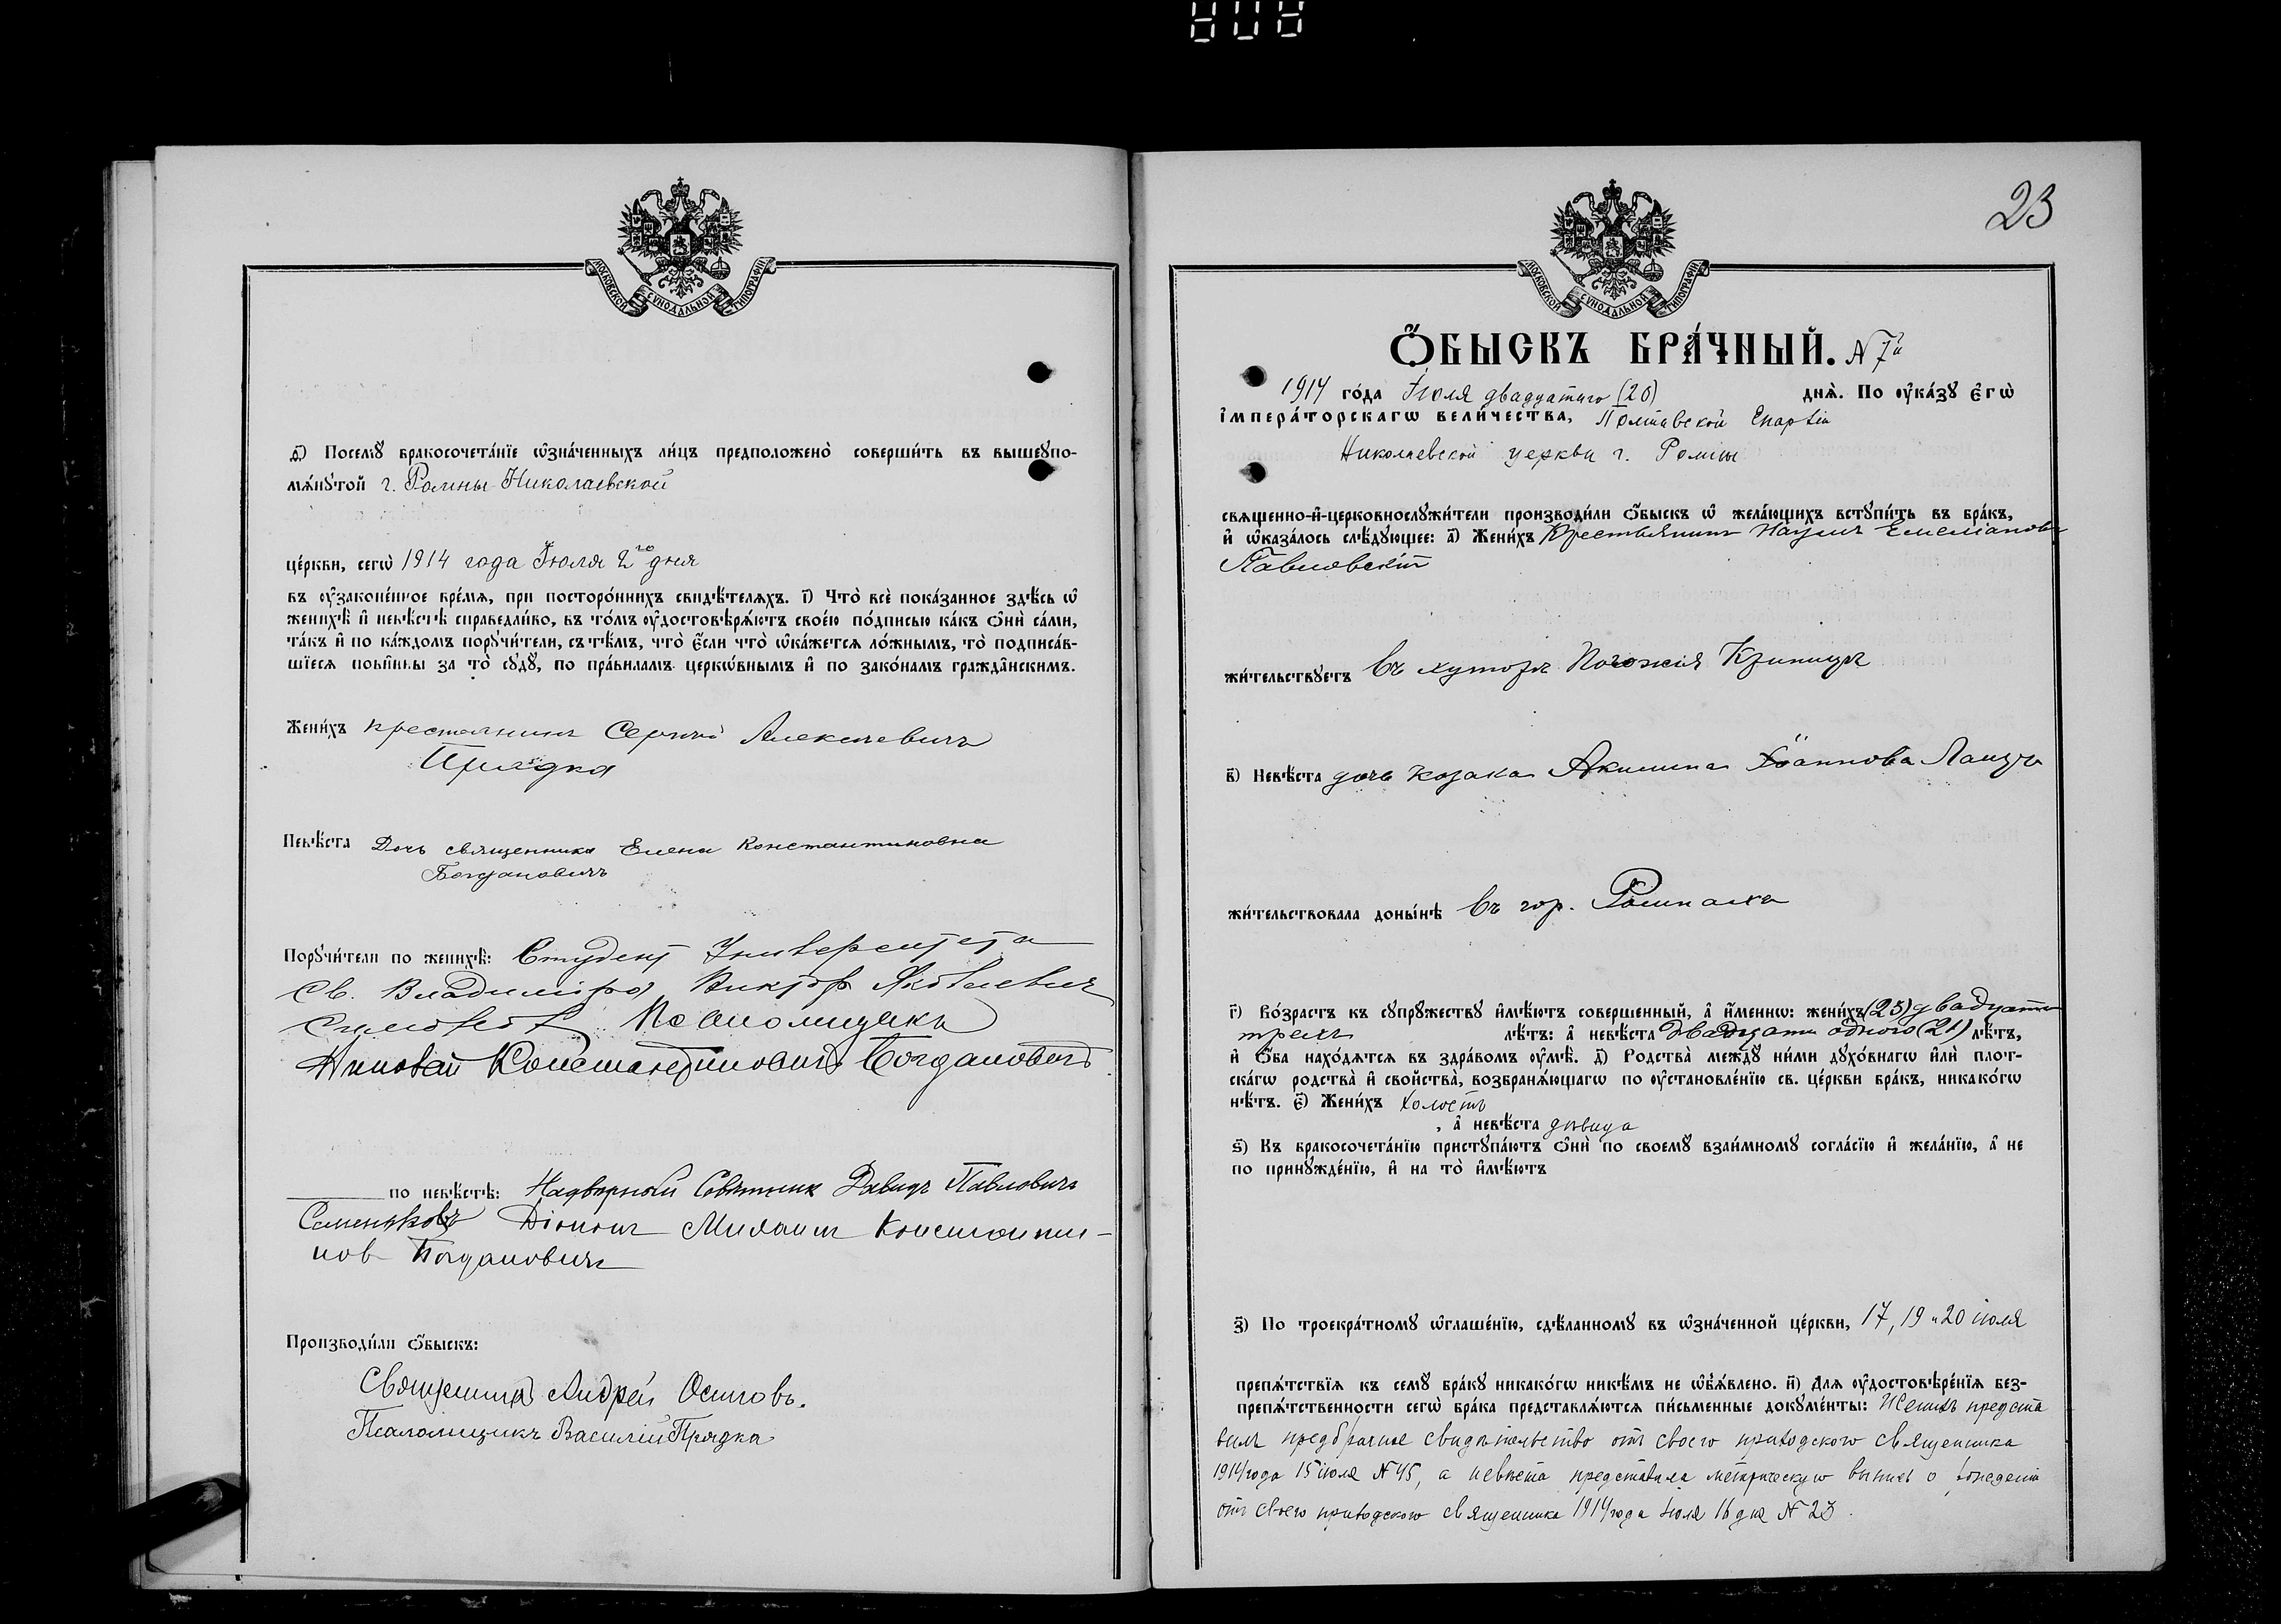 МОСКОВСКОЙ СѴНОДАЛЬНОЙ ТИПОГРАФІИ
ѳ҃) Посемꙋ̀ бракосочета́нїе ѡ҆зна́ченныхъ ли́цъ предположено̀ соверши́ть въ вышеꙋпо-
мѧ́нꙋтой г. Ромны Николаевской
це́ркви, сегѡ̀ 1914 года Іюля 2го дня
въ ᲂу҆законе́нное вре́мѧ, при посторо́ннихъ свидѣ́телѧхъ. і҃) Что̀ всѐ пока́занное здѣ́сь ѡ҆
женихѣ̀ и҆ невѣ́стѣ справедли́во, въ то́мъ ᲂу҆достовѣрѧ́ютъ свое́ю по́дписью ка́къ ѻ҆нѝ са́ми,
та́къ и҆ по ка́ждомъ порꙋчи́тели, съ тѣ́мъ, что̀ є҆́сли что̀ ѡ҆ка́жетсѧ ло́жнымъ, то̀ подписа́в-
шїесѧ пови́нны за то̀ сꙋдꙋ̀, по пра́виламъ церкѡ́внымъ и҆ по зако́намъ гражда́нскимъ.
Жени́хъ крестьянинъ Сергѣй Алексѣевичъ
Прядка
Невѣ́ста Дочь священника Елена Константиновна
Богдановичъ
Порꙋчи́тели по женихѣ̀: Студент Университета
Св. Владиміра Виктор Яковлевич
Псаломщикъ
Николай Константиновичъ Богдановичъ
по невѣ́стѣ: Надворный Совѣтникъ Давидъ Павловичъ
Семеньковъ Діаконъ Михаилъ Константи-
нов Богдановичъ
Производи́ли ѻ҆́быскъ:
Священникъ Андрей Осиповъ.
Псаломщикъ Василій Прядка
23
МОСКОВСКОЙ СѴНОДАЛЬНОЙ ТИПОГРАФІИ
Ѻ҆́БЫСКЪ БРА́ЧНЫЙ. N 7й
1914 го́да Іюля двадцатаго (20) днѧ̀. По ᲂу҆ка́зꙋ є҆гѡ̀
і҆мпера́торскагѡ вели́чества, Полтавской Епархіи
Николаевской церкви г. Ромны
свѧще́нно-и҆-церковнослꙋжи́тели производи́ли ѻ҆́быскъ ѡ҆ жела́ющихъ встꙋпи́ть въ бра́къ,
и҆ ѡ҆каза́лось слѣ́дꙋющее: а҃) Жени́хъ Крестьянинъ Наумъ Емеліановъ
Павловскій
жи́тельствꙋетъ въ хуторѣ Погожія Криницы
в҃) Невѣ́ста дочь козака Акилина Іоаннова Лапух
жи́тельствовала доны́нѣ въ гор. Ромнахъ
г҃) Во́зрастъ къ сꙋпрꙋ́жествꙋ и҆мѣ́ютъ соверше́нный, а҆ и҆́меннѡ: жени́хъ (23) двадцати
трехъ лѣ́тъ: а҆ невѣ́ста двадцати одного (21) лѣ́тъ,
и҆ ѻ҆́ба нахо́дѧтсѧ въ здра́вомъ ᲂу҆мѣ̀. д҃) Родства̀ междꙋ̀ ни́ми дꙋхо́внагѡ и҆лѝ плот-
ска́гѡ родства̀ и҆ сво́йства, возбранѧ́ющагѡ по ᲂу҆становле́нїю св. це́ркви бра́къ, никако́гѡ
нѣ́тъ. є҃) Жени́хъ холостъ
, а҆ невѣ́ста дѣвица
ѕ҃) Къ бракосочета́нїю пристꙋпа́ютъ ѻ҆нѝ по своемꙋ̀ взаи́мномꙋ согла́сїю и҆ жела́нїю, а҆ не
по принꙋжде́нїю, и҆ на то̀ и҆мѣ́ютъ
з҃) По троекра́тномꙋ ѡ҆глаше́нїю, сдѣ́ланномꙋ въ ѡ҆зна́ченной це́ркви, 17, 19 и 20 іюля
препѧ́тствїѧ къ семꙋ̀ бра́кꙋ никако́гѡ никѣ́мъ не ѡ҆б̾ѧ́влено. и҃) Длѧ ᲂу҆достовѣре́нїѧ без-
препѧ́тственности сегѡ̀ бра́ка представлѧ́ютсѧ пи́сьменные докꙋме́нты: Женихъ предста
вилъ предбрачное свидѣтельство отъ своего приходского священника
1914 года 15 іюля N 45, а невѣста представила метрическую выпись о рожденіи
отъ своего приходского священника 1914 года іюля 16 дня N 23.